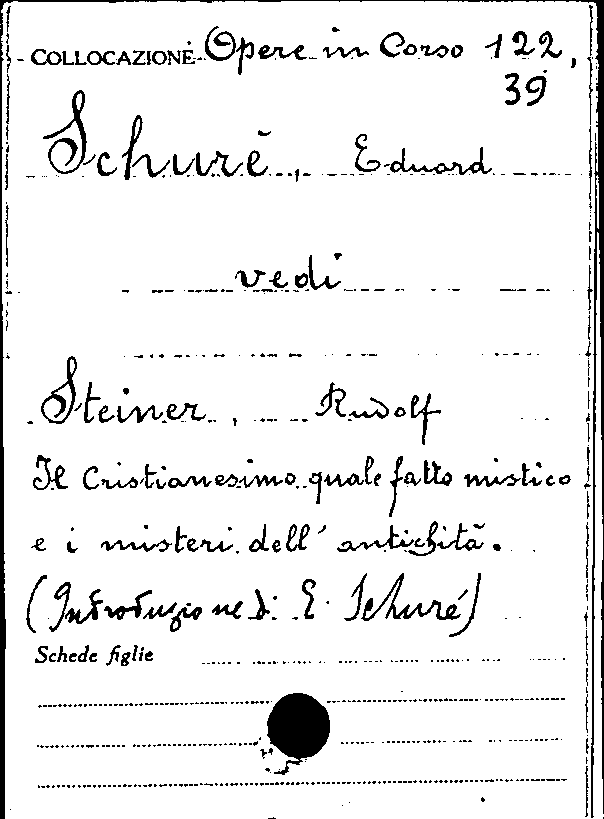 COLLOCAZIONE Opere in Corso 122,
39
Schuré, Eduard
vedi
Steiner, Rudolf
Il Cristianesimo quale fatto mistico
e i misteri dell' antichità.
(Introduzione di E. Schuré)
Schede figlie